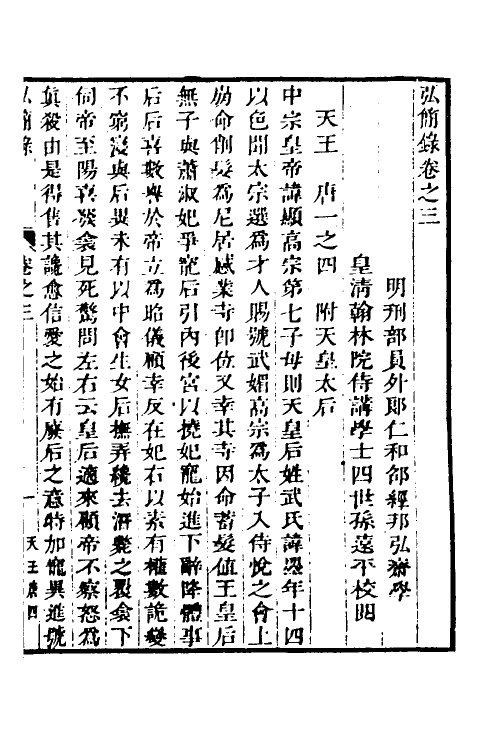 弘簡錄卷之三
明刑部員外郎仁和邵經邦弘齋學
皇清翰林院侍講學士四世孫遠平校閱
天王 唐一之四 附天皇太后
中宗皇帝諱顯高宗第七子母則天皇后姓武氏諱曌年十四
以色聞太宗選爲才人賜號武媚高宗爲太子入侍悅之會上
崩命削髮爲尼居感業寺卽位又幸其寺因命蓄髮値王皇后
無子與蕭淑妃爭寵后引內後宮以撓妃寵始進下辭降體事
后后喜數譽於帝立爲昭儀顧幸反在妃右以素有權數詭變
不窮寖與后異未有以中會生女后撫弄纔去潛斃之裂衾下
伺帝至陽喜發衾見死驚問左右云皇后適來顧帝不察怒爲
眞殺由是得售其讒愈信愛之始有廢后之意特加寵異進號
弘簡錄 卷之三 一 天王唐四